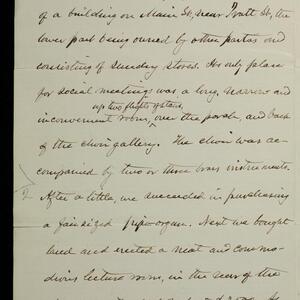 of a building on Main St, near Pratt St, the
lower part being owned by other parties and
consisting of sundry stores. Its only place
for social meetings was a long, narrow and
up two flights of stairs,
inconvenient room, over the porch, and back
of the choir gallery. The choir was ac-
companied by two or three brass instruments.
After a little, we succeeded in purchasing
a fair sized pipe-organ. Next we bought
land and erected a neat and commo-
dious lecture room, in the rear of the